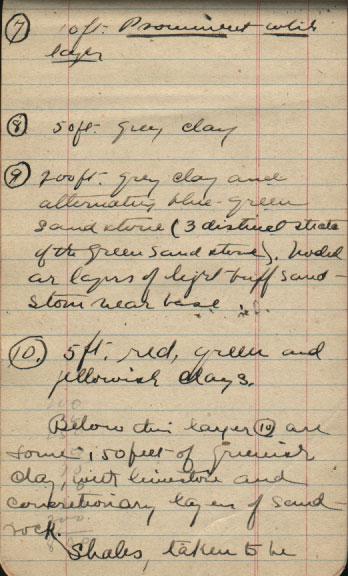 ⑦ 10ft. Prominent white
layer
⑧ 50ft. grey clay
⑨ 200ft. grey clay and
alternating blue-green
sandstone (3 distinct strata
of the green sandstone). Nodul
ar layers of light buff sand-
stone near base
⑩. 5ft. red, green and
yellowish clays.
Below this layer ⑩ are
some 150 feet of greenish
clay, with limestone and
concretionary layers of sand-
rock.
Shales, taken to be